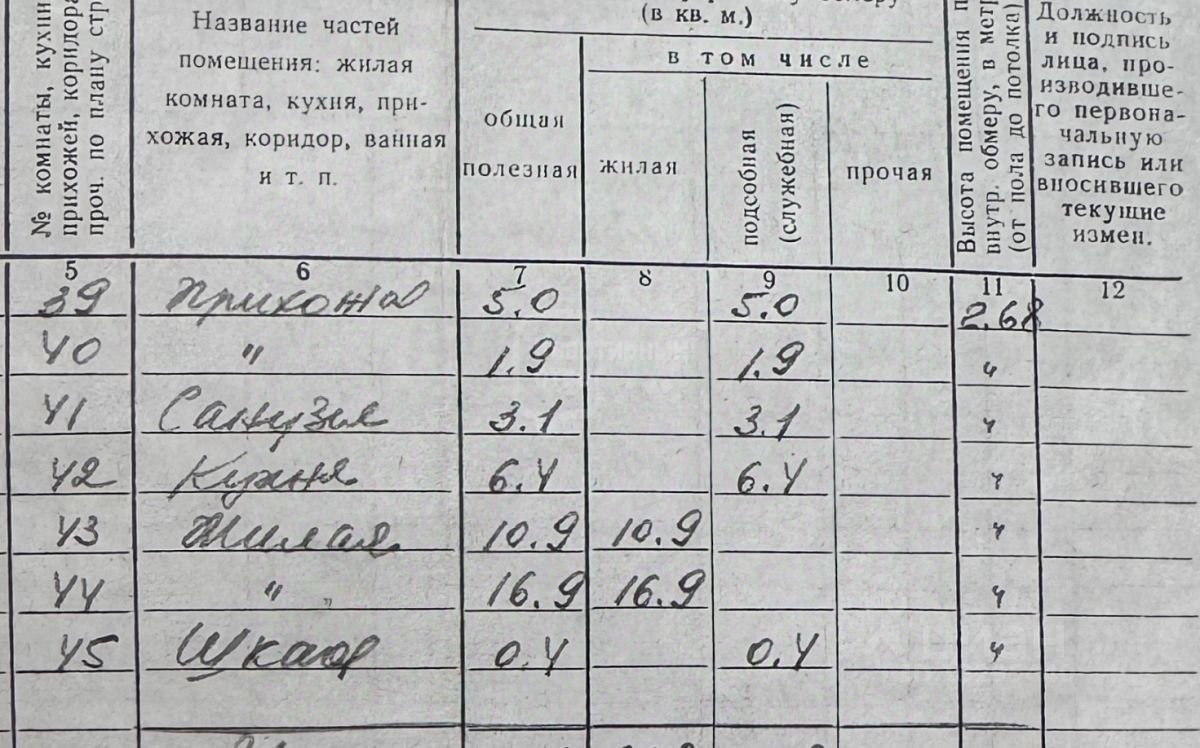 № комнаты, кухни
прихожей, коридора
проч. по плану стр
Название частей
помещения: жилая
комната, кухня, при-
хожая, коридор, ванная
и т. п.
(в кв. м.)
в том числе
общая
полезная
жилая
подсобная
(служебная)
прочая
Высота помещения п
внутр. обмеру, в метр
(от пола до потолка)
Должность
и подпись
лица, про-
изводивше-
го первона-
чальную
запись или
вносившего
текущие
измен.
5 6 7 8 9 10 11 12
39 Прихожая 5.0 5.0 2.68
40 " 1.9 1.9 "
41 Санузел 3.1 3.1 "
42 Кухня 6.4 6.4 "
43 Жилая 10.9 10.9 "
44 " 16.9 16.9 "
45 Шкаф 0.4 0.4 "